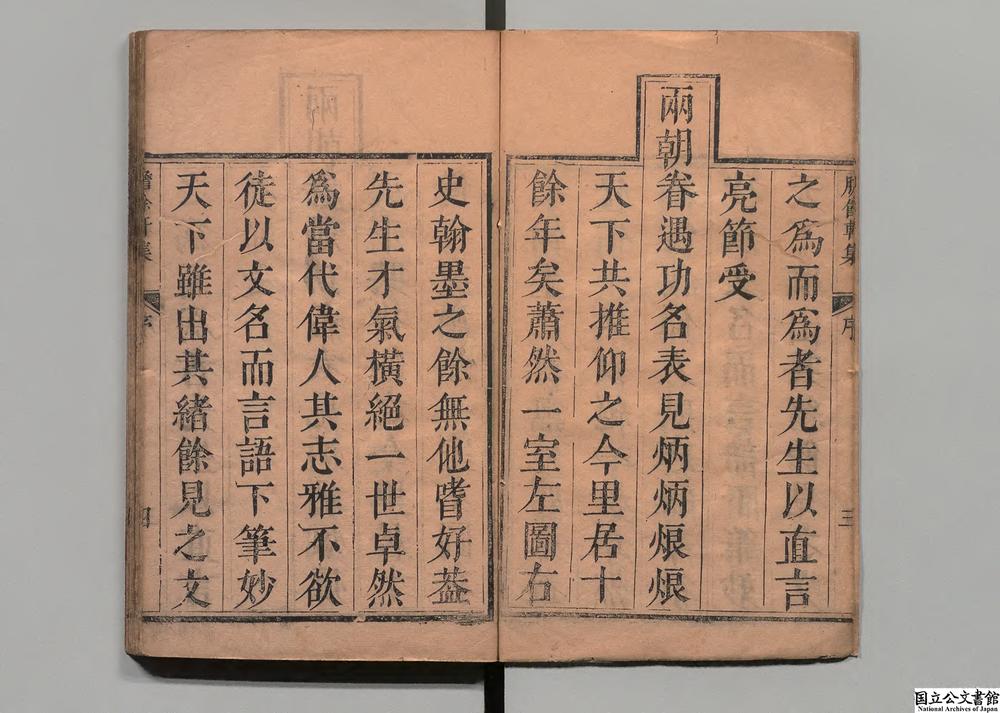 之爲而爲者先生以直言
亮節受
兩朝眷遇功名表見炳炳烺烺
天下共推仰之今里居十
餘年矣蕭然一室左圖右
史翰墨之餘無他嗜好葢
先生才氣橫絕一世卓然
爲當代偉人其志雅不欲
徒以文名而言語下筆妙
天下雖出其緒餘見之文
序
三
四
国立公文書館
National Archives of Japan